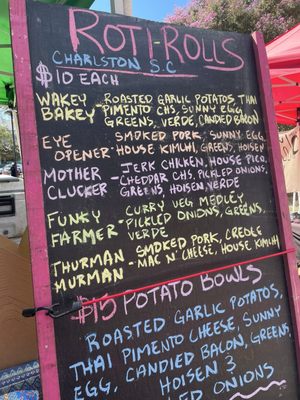 ROTI-ROLLS
CHARLSTON S.C
$10 EACH
WAKEY - ROASTED GARLIC POTATOS, THAI
BAKEY PIMENTO CHS, SUNNY EGG,
GREENS, VERDE, CANDIED BACON
EYE SMOKED PORK, SUNNY EGG,
OPENER - HOUSE KIMJI, GREENS, HOISEN
MOTHER - JERK CHICKEN, HOUSE PICO,
CLUCKER CHEDDAR CHS, PICKLED ONIONS,
GREENS, HOISEN, VERDE
FUNKY - CURRY VEG MEDLEY,
FARMER PICKLED ONIONS, GREENS,
VERDE
THURMAN - SMOKED PORK, CREOLE
MURMAN MAC N' CHEESE, HOUSE KIMHI
$15 POTATO BOWLS
ROASTED GARLIC POTATOS,
THAI PIMENTO CHEESE, SUNNY
EGG, CANDIED BACON, GREENS,
HOISEN &
ONIONS